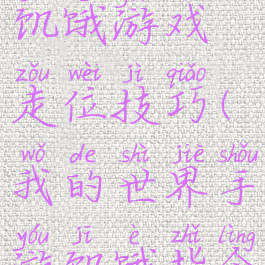 饥饿游戏
zǒu wèi jì qiǎo
走位技巧(
wǒ de shì jiè shǒu
我的世界手
yóu jī è zhǐ lìng
游饥饿指令